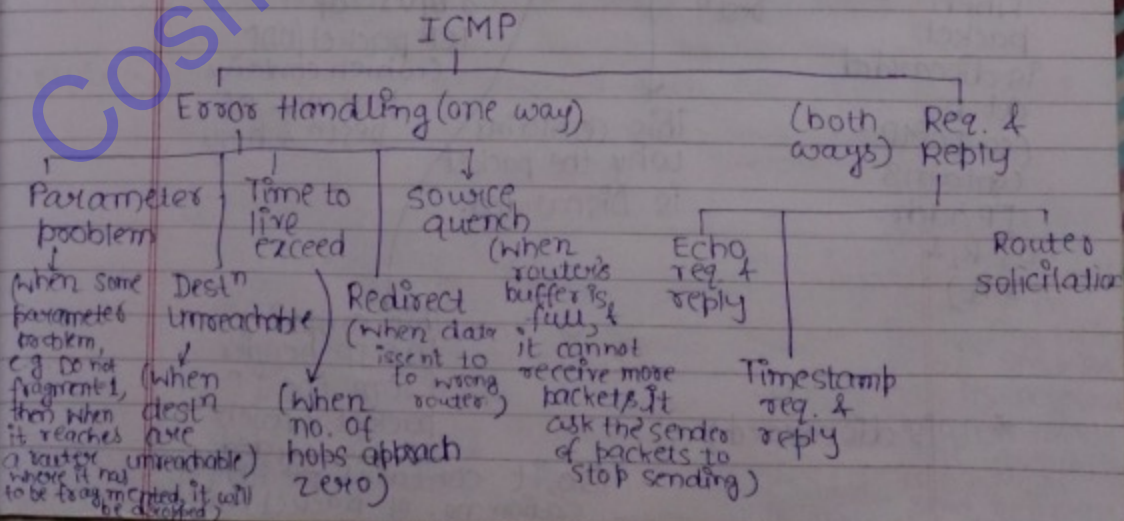 ICMP
Error Handling (one way)
(both ways) Req. & Reply
Parameter
problem
(when some
parameter
problem,
e.g Do not
fragment 1,
then when
it reaches
a router
where it has
to be fragmented, it will
be dropped)
Destⁿ
unreachable
(when
destⁿ
are
unreachable)
Time to
live
exceed
(when
no. of
hops approach
zero)
Redirect
(when data
is sent to
to wrong
router)
source
quench
(when
router's
buffer is
full, &
it cannot
receive more
packets, it
ask the sender
of packets to
stop sending)
Echo
req. &
reply
Timestamp
req. &
reply
Router
solicilation
Cosm